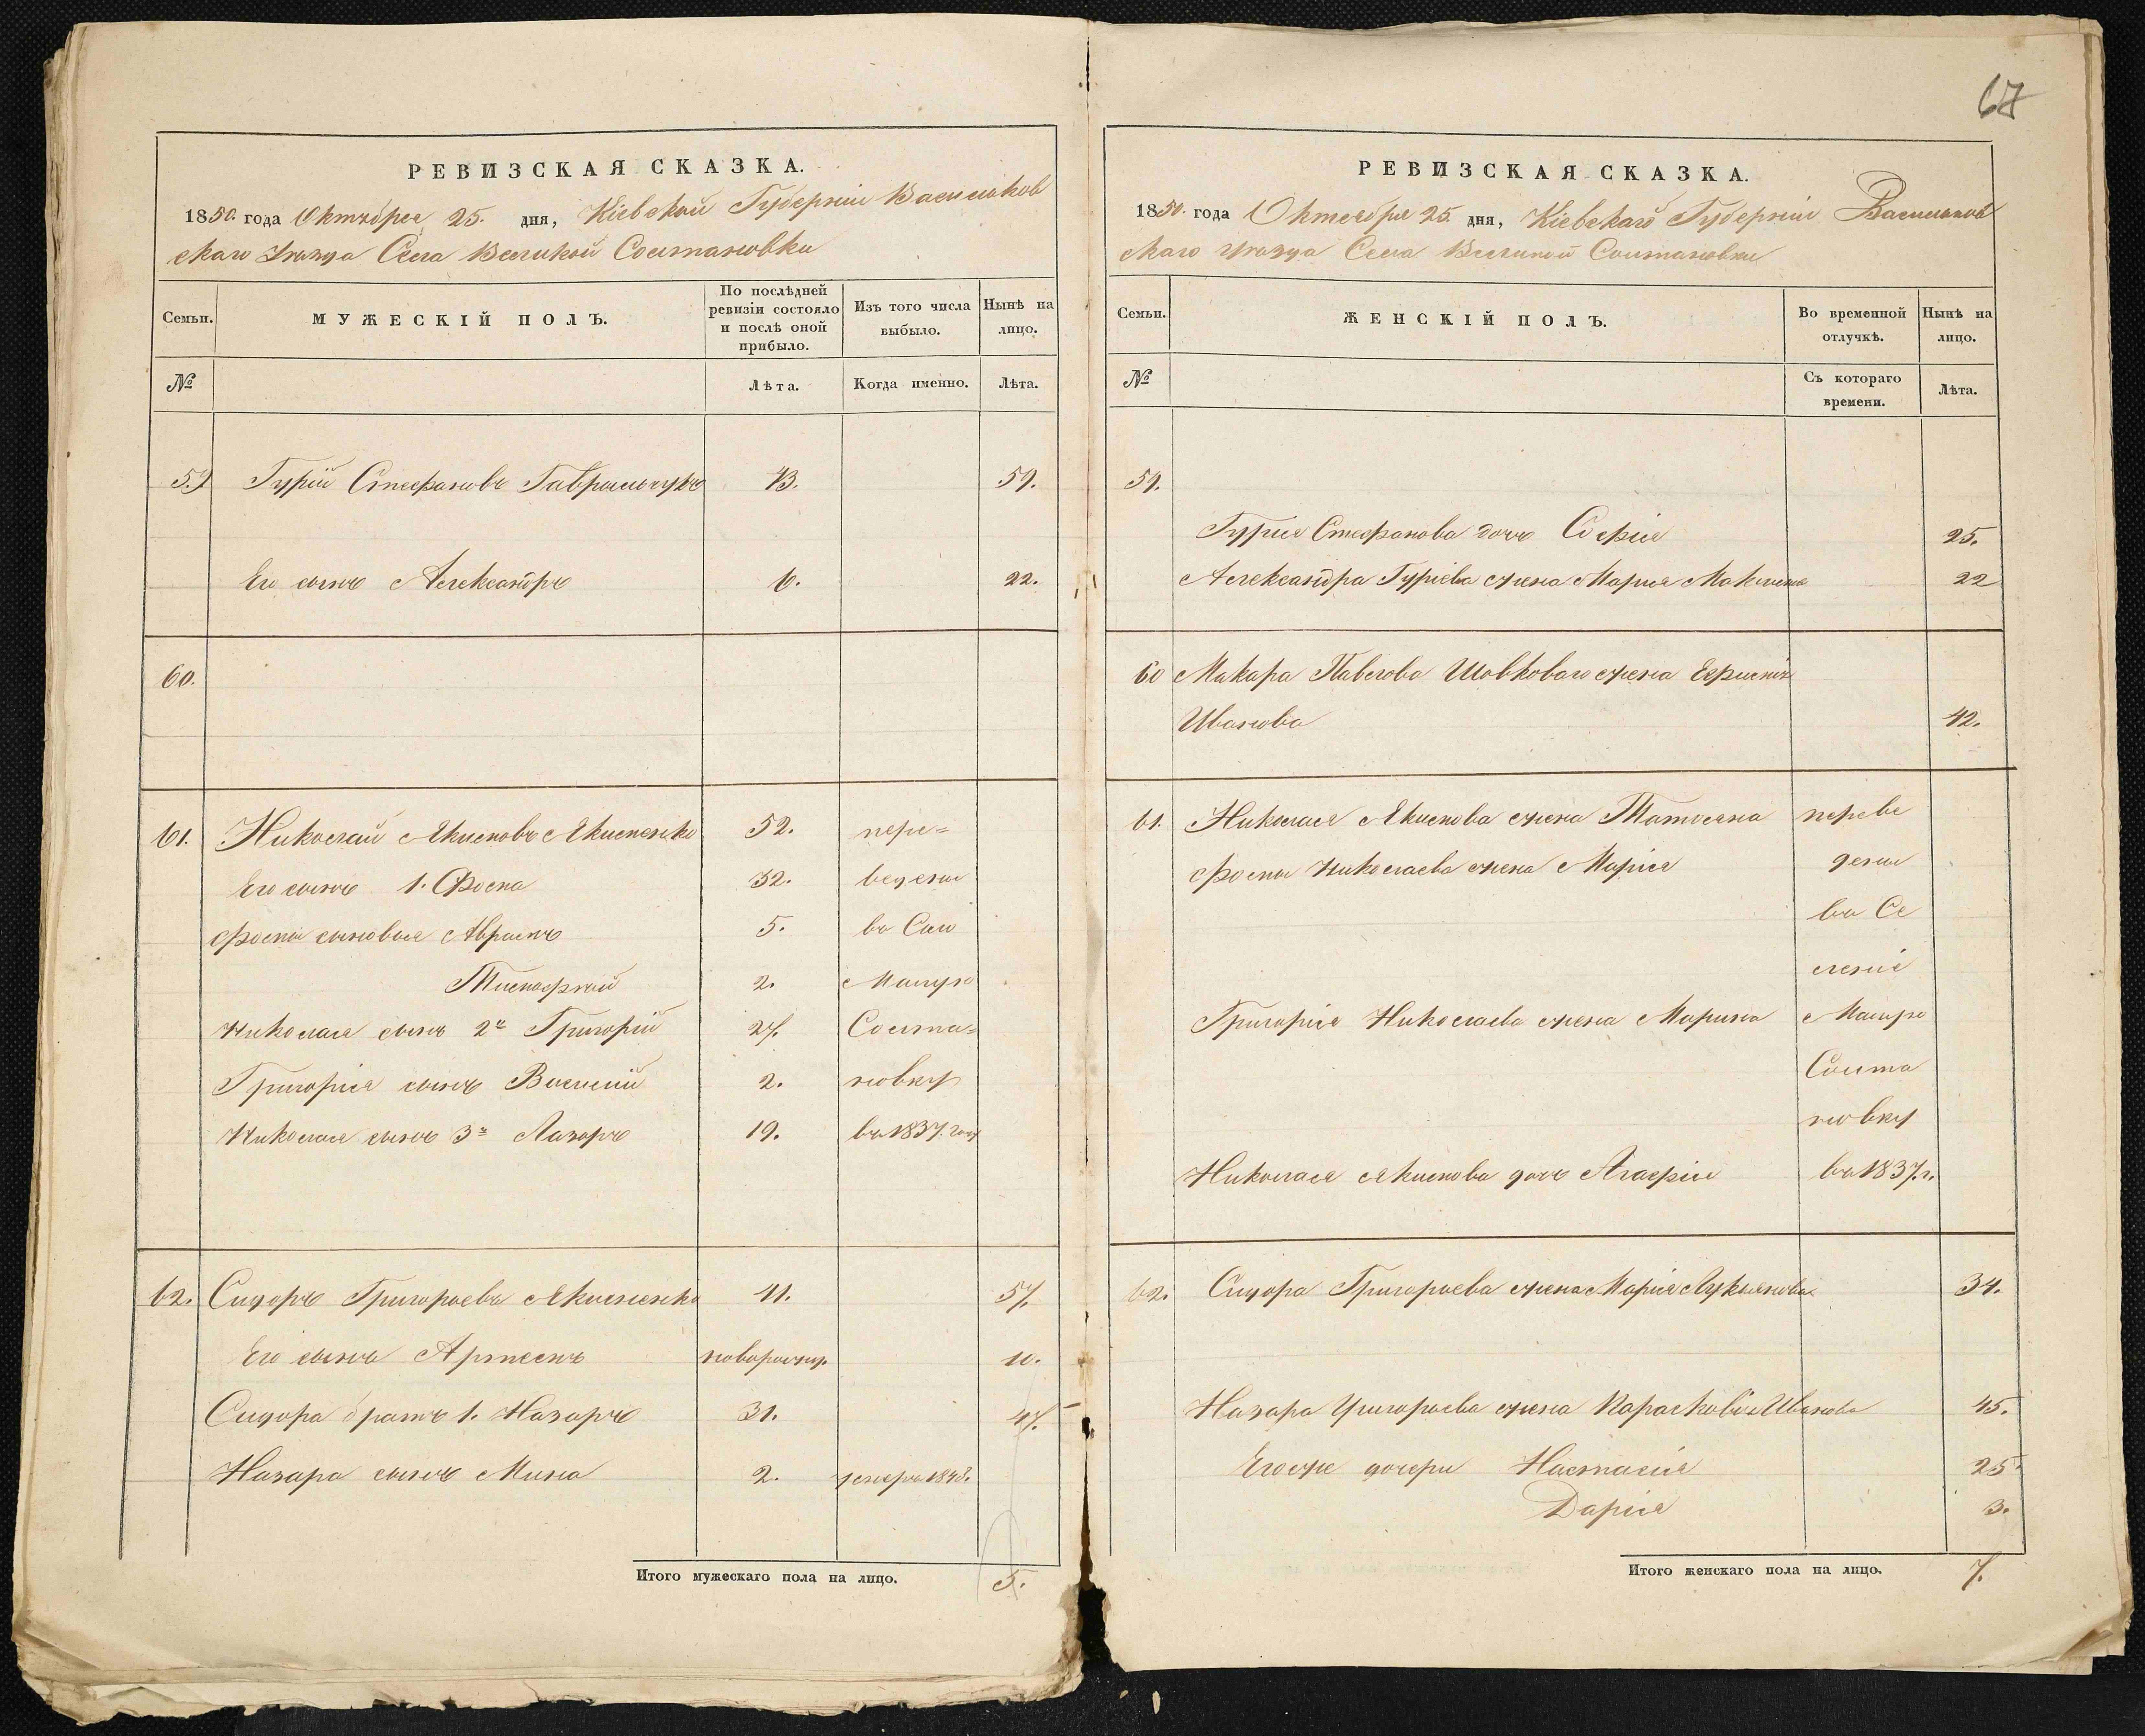 67
РЕВИЗСКАЯ СКАЗКА.
1850. года Октября 25. дня, Кіевской Губерніи Васильков
скаго Уѣзда Села Великой Солтановки
Семьи.
МУЖЕСКІЙ ПОЛЪ.
По послѣдней ревизіи состояло и послѣ оной прибыло.
Изъ того числа выбыло.
Нынѣ на лицо.
№
Лѣта.
Когда именно.
Лѣта.
59 Гурій Стефановъ Гаврильчукъ 43. 59.
Его сынъ Александръ 6. 22.
60.
61. Николай Якимовъ Якименко 52. пере=
Его сынъ 1. Фома 32. ведены
Фомы сыновья Аврамъ 5. въ Сел
Тимофей 2. Малую
Николая сынъ 2й Григорій 27. Солта=
Григорія сынъ Василій 2. новку
Николая сынъ 3й Лазарь 19. въ 1837. году
62. Сидоръ Григорьевъ Якименко 41. 57.
Его сынъ Артемъ новорожд. 10.
Сидора братъ 1. Назаръ 31. 47.
Назара сынъ Мина 2. умеръ 1848.
Итого мужескаго пола на лицо. 5.
РЕВИЗСКАЯ СКАЗКА.
1850. года Октября 25. дня, Кіевскаго Губерніи Васильков
скаго Уѣзда Села Великой Солтановки
Семьи.
ЖЕНСКІЙ ПОЛЪ.
Во временной отлучкѣ.
Нынѣ на лицо.
№
Съ котораго времени.
Лѣта.
59.
Гурія Стефанова дочь Софія 25.
Александра Гуріева жена Марія 22
60 Макара Павлова Шовковаго жена
Иванова 42.
61. Николая Якимова жена Татіяна переве
Фомы Николаева жена Марія дены
въ Се
леніе
Григорія Николаева жена Марина Малую
Солта
новку
Николая Якимова дочь Агафія въ 1837. г.
62. Сидора Григорьева жена Марія Лукьянова 34.
Назара Григорьева жена Парасковія Иванова 45.
Его же дочери Настасія 25.
Дарія 3.
Итого женскаго пола на лицо. 7.